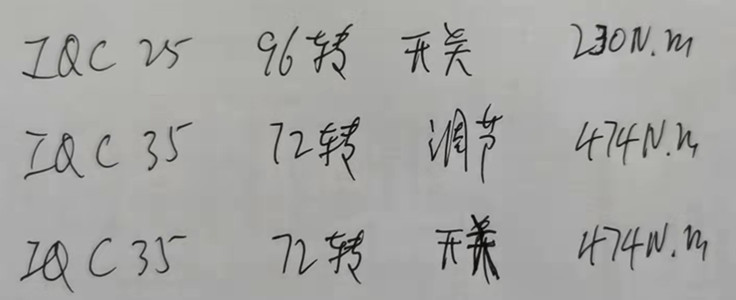 IQC 25 96转 开关 230N.m
IQC 35 72转 调节 474N.m
IQC 35 72转 开关 474N.m